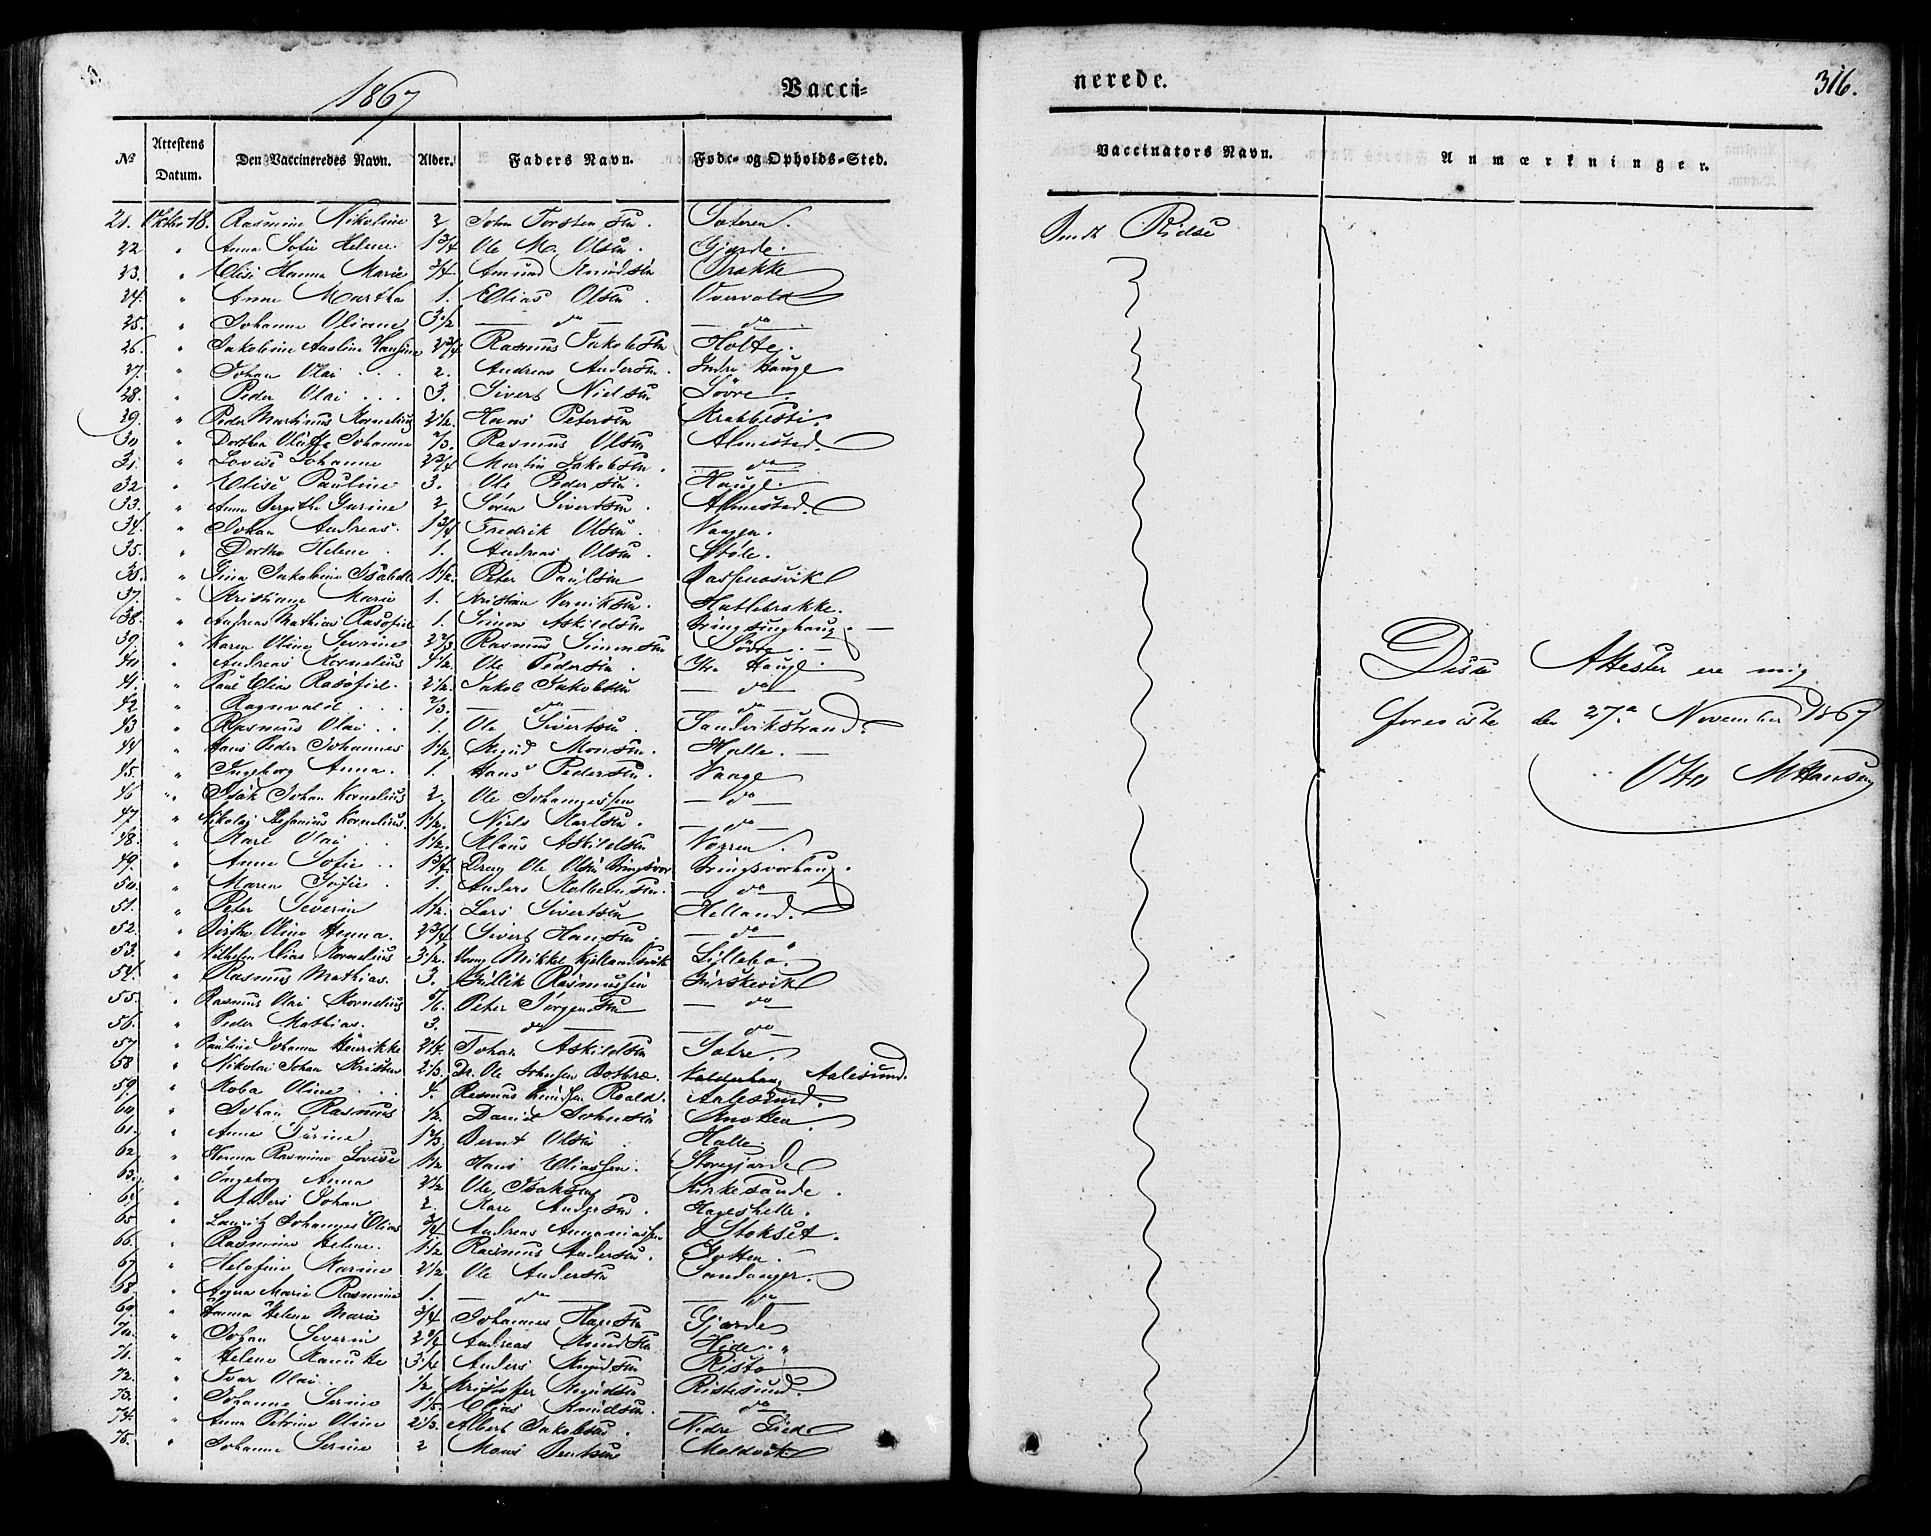 1867
Vacci-
nerede.
316.
№ Attestens Datum. Den Vaccineredes Navn. Alder. Faders Navn. Føde- og Opholds-Sted.
Vaccinators Navn. Anmærkninger.
21. Oktbr 18. Rasmine Nikoline 2 John Torstensen. Sæteren.
22 " Anna Sofie Helene. 1 3/4 Ole M. Olsen Gjerde.
23. " Elise Hanna Marie 3/4 Amund Knudsen Brække
24. " Anne Martha 1. Elias Olsen. Overvold
25. " Johanne Oliane 3 1/2 — do — — do —
26. " Jakobine Auline Hansine 2 3/4 Rasmus Jakobsen Holte.
27. " Johan Olai . . . 2. Andreas Andersen. Indre Hauge
28. " Peder Olai . . . 3. Sivert Nielsen Løvre.
29. " Peder Martinus Kornelius 2 1/2. Hans Petersen Krabbesti.
30 " Dorthea Oluffa Johanne 2/3. Rasmus Olsen Almestad.
31. " Lovise Johanne 2 3/4 Martin Jakobsen. — do —
32 " Elise Pauline 3. Ole Pedersen. Hauge.
33. " Anne Bergithe Gurine 2 Søren Sivertsen. Almestad.
34. " Johan Andreas. 1 3/4 Fredrik Olsen. Vaagen.
35. " Dorthe Helene. 1. Andreas Olsen. Støle.
36. " Gina Jakobine 1 1/2. Peter Paulsen
37. " Kristiane Marie 1. Kristian Hatlebrække.
38. " Andreas Mathias 1. Simon Askildsen Bringsinghaug. —
39 " Karen Oline Severine 2 2/3 Rasmus Simonsen Løvre. —
40 " Andreas Kornelius 4 1/2. Ole Pedersen. Ytre Hauge.
41. " Paul Elias 2 1/2. Jakob Jakobsen — do —
42 " Ragnvald . . . 2/3. — do — — do —
43 " Rasmus Olai . . 1. Ole Sivertsen. Sandvikstrand.
44. " Hans Peder Johannes 1 1/2. Knud Monsen. Halle. —
45. " Ingeborg Anna. 1. Hans Pedersen. Vaage
46 " Isak Johan Kornelius 2. Ole Johannessen — do —
47. " Nikolaj Stefanius Kornelius. 1 1/2. Niels Karlsen. — do —
48. " Karl Olai . . 1 1/2. Klaus Askildsen Norren.
49. " Anne Sofie . . 1 3/4. Dreng Ole Olsen Bringsvor Bringsvorhaug.
50. " Maren Sofie. 1. Anders Kolbensen. — do —
51. " Peter Severin 1 1/2. Lars Sivertsen Helland.
52. " Birthe Oline Hanna. 2 3/4 Sivert Hansen. — do —
53. " Vilhelm Elias Kornelius 3 1/2. Dreng Mikkel Kjellandsvik Lillebø.
54. " Rasmus Mathias. 3. Gullik Rasmussen Gurskevik
55. " Rasmus Olai Kornelius 5/6. Peter Jørgensen — do —
56. " Peder Mathias. 3. — do — — do —
57 " Pauline Johanna Henrikke 2 1/4. Johan Askildsen Sætre.
58 " Nikolai Johan Kristen 2 1/3. Dr. Ole Johnsen Valderhaug Aalesund.
59. " Oline . . . 4. Rasmus Knudsen Roald. Aalesund.
60. " Johan Rasmus 1/2. Daniel Johnsen Knotten.
61. " Anne Gurine. 1 2/3. Bernt Olsen Halle.
62. " Hanna Rasmine Lovise 1 1/2 Hans Eliassen. Storegjerde
63. " Ingeborg Anna 2 1/2 Ole Isaksen Kirkesunde.
64. " Anders Johan 2. Kare Andersen. Hageshelle.
65 " Lauritz Johannes Elias 3/4 Andreas Annaniassen Stokset.
66. " Rasmine Helene. 1 1/2 Rasmus Andersen. Gotten.
67 " Karine 2 1/2 Ole Andersen Sandanger.
68. " Anna Marie Rasmine 1. — do — — do —
69. " Hanna Helene Marie 3/4 Johannes Hansen Gjerde
70. " Johan Severin 2 3/4 Andreas Knudsen Hide. "
71. " Helene 3 1/4 Anders Knudsen Riste
72. " Ivar Olai. 1/2 Kristoffer Knudsen Ristesund.
73. " Johanne Serine 1 1/5 Elias Knudsen. — do —
74. " Anna Petrine Oline 2 1/3. Albert Jakobsen. Nedre Lied
75. " Johanne Serine 2 Mons Bentsen Moldvik.
Bendt Ridse
Disse Attester ere mig
foreviste den 27de November 1867
Otto M Hansen